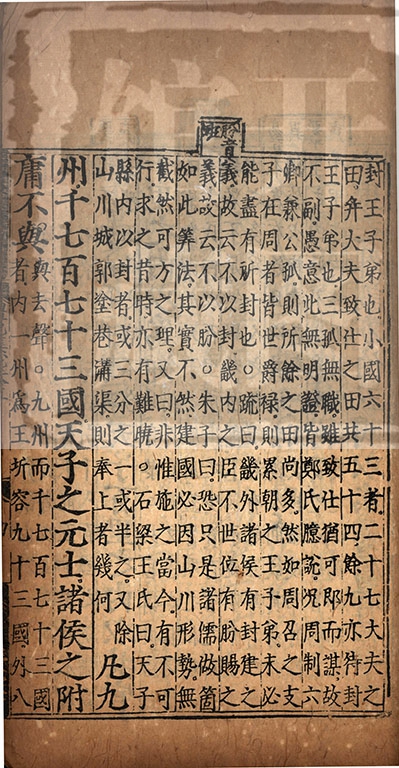 朌音班
封王子弟也。小國六十三者。二十七大夫之
田。并大夫致仕之田。共五十四。餘九亦待封
王子弟也。三孤無職。雖致仕猶可即而謀。故
不副。愚意此無明證。皆鄭氏臆說。况周制六
卿兼公孤。則所餘之田尚多。然如周召之支
子在周者。皆世爵禄。則累朝之王子弟未必
能盡有所封也。○疏曰。畿外諸侯有封建之
義。故云不以封。畿内之臣不世位。有朌賜之
義。故云不以朌。○朱子曰。恐只是諸儒做箇
如此筭法。其實不然。建國必因山川形勢。無
截然可方之理。又曰。非惟施之當今有不可
行。求之昔時亦有難曉。○石梁王氏曰。天子
縣内以封者。或三分之一。或半之。又除
山川城郭塗巷溝渠。則奉上者幾何
凡九
州。千七百七十三國。天子之元士。諸侯之附
庸不與
與去聲。○九州而千七百七十三國
者。内一州爲王圻。容九十三國。外八